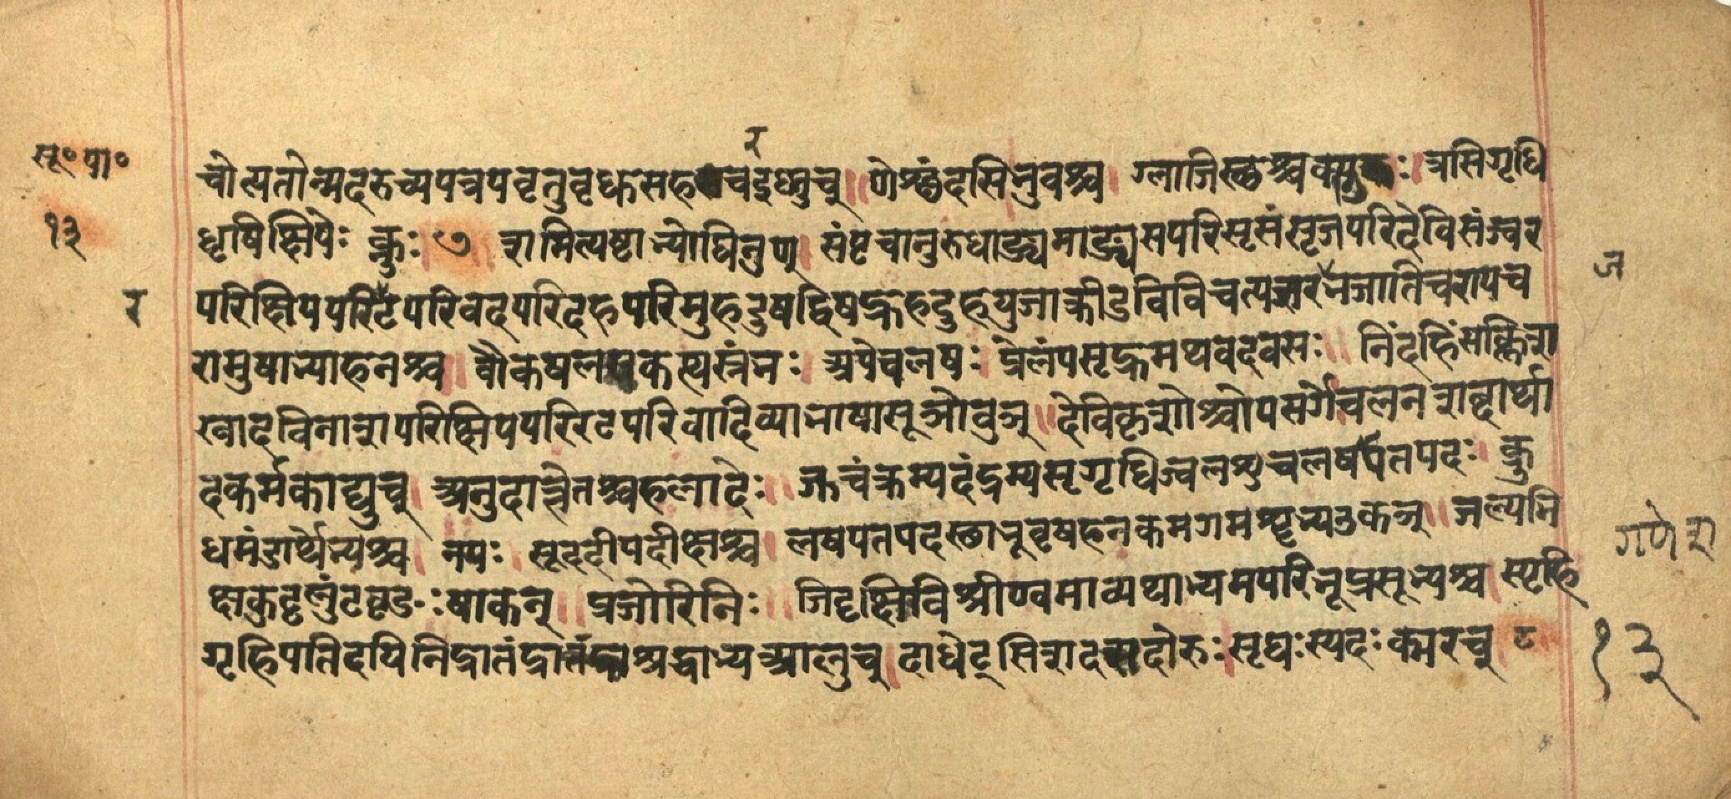 सू॰पा॰
१३
र
चोत्पतोन्मदरुच्यपत्रपवृतुवृधुसहचरइष्णुच् णेश्छंदसि भुवश्च ग्लाजिस्थश्चक्स्नुः त्रसिगृधि
धृषिक्षिपेः क्नुः ७ शमित्यष्टाभ्योघिनुण् संपृचानुरुधाङ्यमाङ्यसपरिसृसंसृजपरिदेविसंज्वर
ज
परिक्षिपपरिटपरिवदपरिदहपरिमुहदुषद्विषद्रुहदुहयुजाक्रीडविविचत्यजरजभजातिचरापच
र
रामुषाभ्याहनश्च वौकषलसकत्थस्रंभः अपेचलषः प्रेलपसृद्रुमथवदवसः निंदहिंसक्लिश
खादविनाशपरिक्षिपपरिरटपरिवादिव्याभाषासूञोवुञ् देविक्रुशोश्चोपसर्गे चलनशब्दार्था
दकर्मकाद्युच् अनुदात्तेतश्चहलादेः जुचंक्रम्यदंद्रम्यसृगृधिज्वलशुचलषपतपदः क्रु
धमंडार्थेभ्यश्च नयः सूददीपदीक्षश्च लषपतपदस्थाभूवृषहनकमगमशॄभ्यउकञ् जल्पभि
गणेश
क्षकुट्टलुंटवृङः षाकन् प्रजोरिनिः जिदृक्षिविश्रीण्वमाव्यथाभ्यमपरिभूप्रसूभ्यश्च स्पृहि
गृहिपतिदयिनिद्रातंद्राश्रद्धाभ्यआलुच् दाधेट्सिशदसदोरुः सृघस्यदः क्मरच् ८
१३